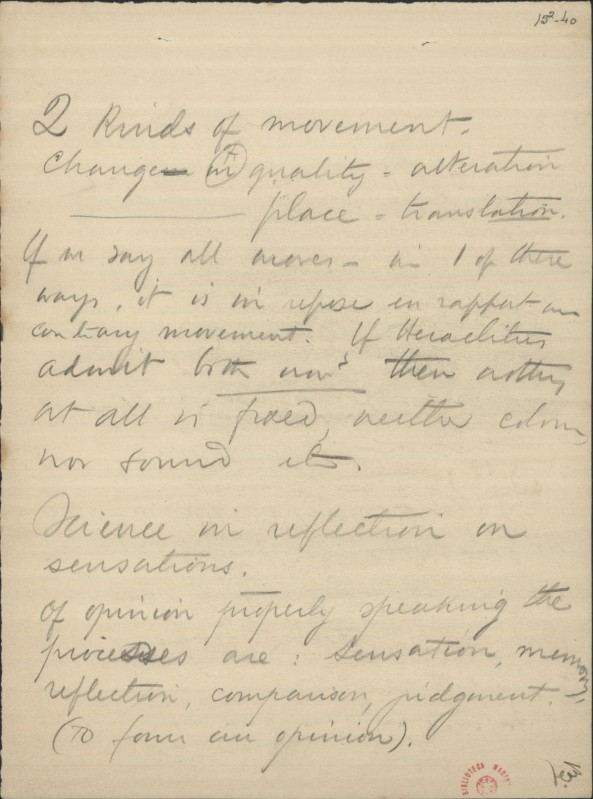 15²-40
2 kinds of movement.
Change in quality = alteration
place = translation.
If we say all moves - in 1 of these
ways, it is in repose en rapport au
contrary movement. If Heraclitus
admit both movts then nothing
at all is fixed, neither colour,
nor sound etc.
Science in reflection on
sensations.
Of opinion properly speaking the
processes are: Sensation, memory,
reflection, comparison, judgment.
(To form an opinion).
BIBLIOTECA